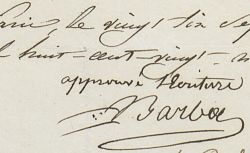 Paris, le vingt six Sep
l huit-cent-vingt-
approuvé l'écriture
Barba